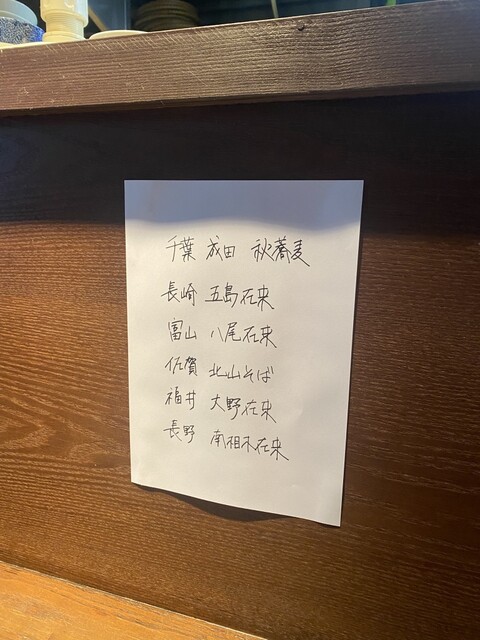 千葉 成田 秋蕎麦
長崎 五島在来
富山 八尾在来
佐賀 北山そば
福井 大野在来
長野 南相木在来